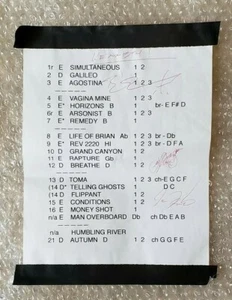 1r E SIMULTANEOUS 1 2
2 D GALILEO 1
3 E AGOSTINA 1 2 3
------
4 E VAGINA MINE 1 2 3
5 E* HORIZONS B 1 br- E F# D
6r E ARSONIST B 1 2 3
7 E* REMEDY B 1 2
------
8 E LIFE OF BRIAN Ab 1 2 3 br - Db
9 E* REV 2220 HI 1 2 3 br - D F A
10 D GRAND CANYON 1 2
11 E RAPTURE Gb 1
12 D BREATHE D 1 2
------
13 D TOMA 1 2 3 ch-E G C F
(14 D* TELLING GHOSTS 1 D C
(14 D FLIPPANT 1 2
15 E CONDITIONS 1 2
16 E MONEY SHOT 1
n/a E MAN OVERBOARD Db ch Db E A B
------
n/a HUMBLING RIVER
21 D AUTUMN D 1 2 ch G G F E